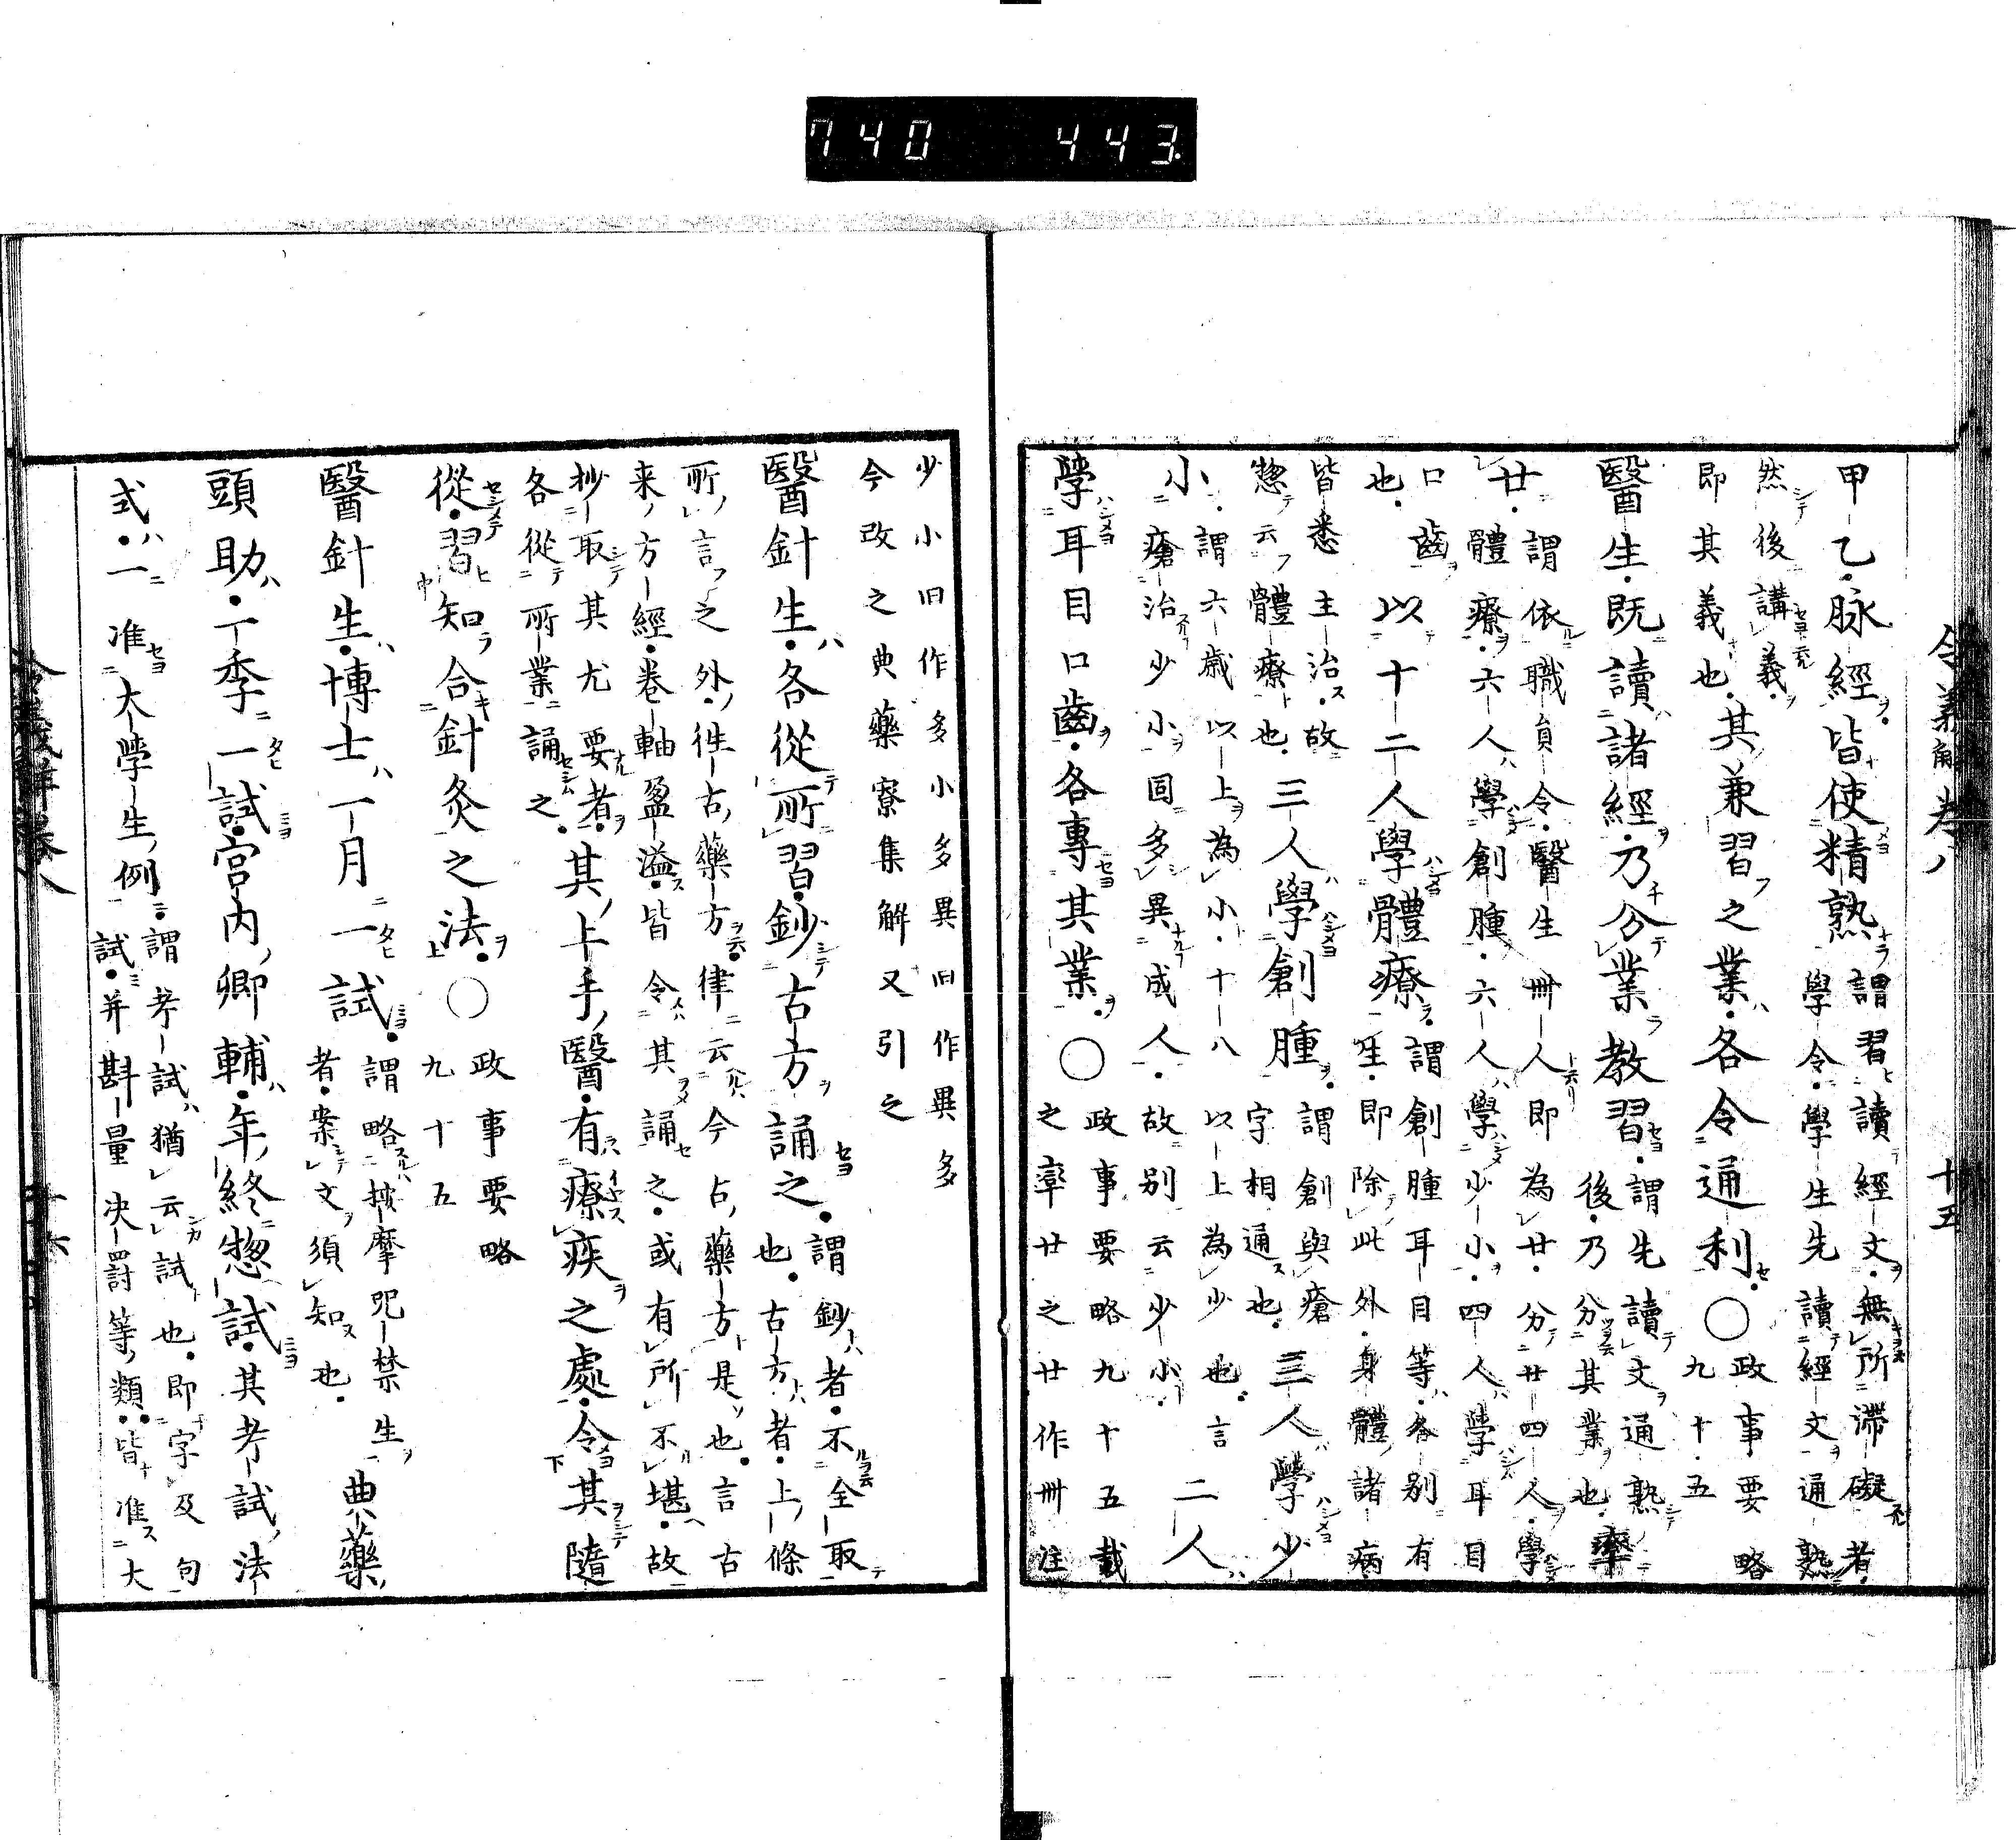 令義解卷八 十五
甲乙脉經皆使精熟
謂習讀經文無所滯礙者
學令學生先讀經文通熟
然後講義
即其義也
其兼習之業各令通利〇
政事要略
九十五
醫生既讀諸經乃分業教習
謂先讀文通熟
後乃分其業也
率
廿
謂依職員令醫生卌人即為廿分廿四人學
體療六人學創腫六人學少小四人學耳目
口齒
也
以十二人學體療
謂創腫耳目等各別有
生即除此外身體諸病
皆悉主治故
惣云體療也
三人學創腫
謂創與瘡
字相通也
三人學少
小
謂六歲以上為小十八以上為少也言
瘡治少小固多異成人故別云少小
二人
學耳目口齒各專其業〇
政事要略九十五載
之率廿之廿作卌注
少小旧作多小多異旧作異多
今改之典藥寮集解又引之
醫針生各從所習鈔古方誦之
謂鈔者不全取
也古方者上條
所言之外往古藥方律云今古藥方是也言古
来方經卷軸盈溢皆令其誦之或有所不堪故
抄取其尤要者
各從所業誦之
其上手醫有療疾之處令其隨
從習知合針灸之法〇
政事要略
九十五
醫針生博士一月一試
謂略按摩咒禁生
者案文須知也
典藥
頭助一季一試宮內卿輔年終惣試其考試法
式一准大學生例
謂考試猶云試也即字及句
試并斟量決罰等類皆准大